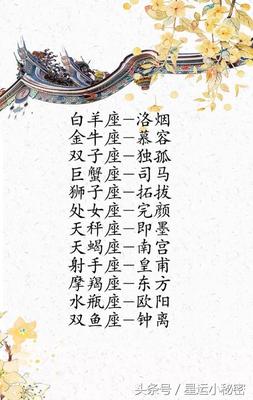 白羊座—洛烟
金牛座—慕容
双子座—独孤
巨蟹座—司马
狮子座—拓拔
处女座—完颜
天秤座—即墨
天蝎座—南宫
射手座—皇甫
摩羯座—东方
水瓶座—欧阳
双鱼座—钟离
头条号/星运小秘密